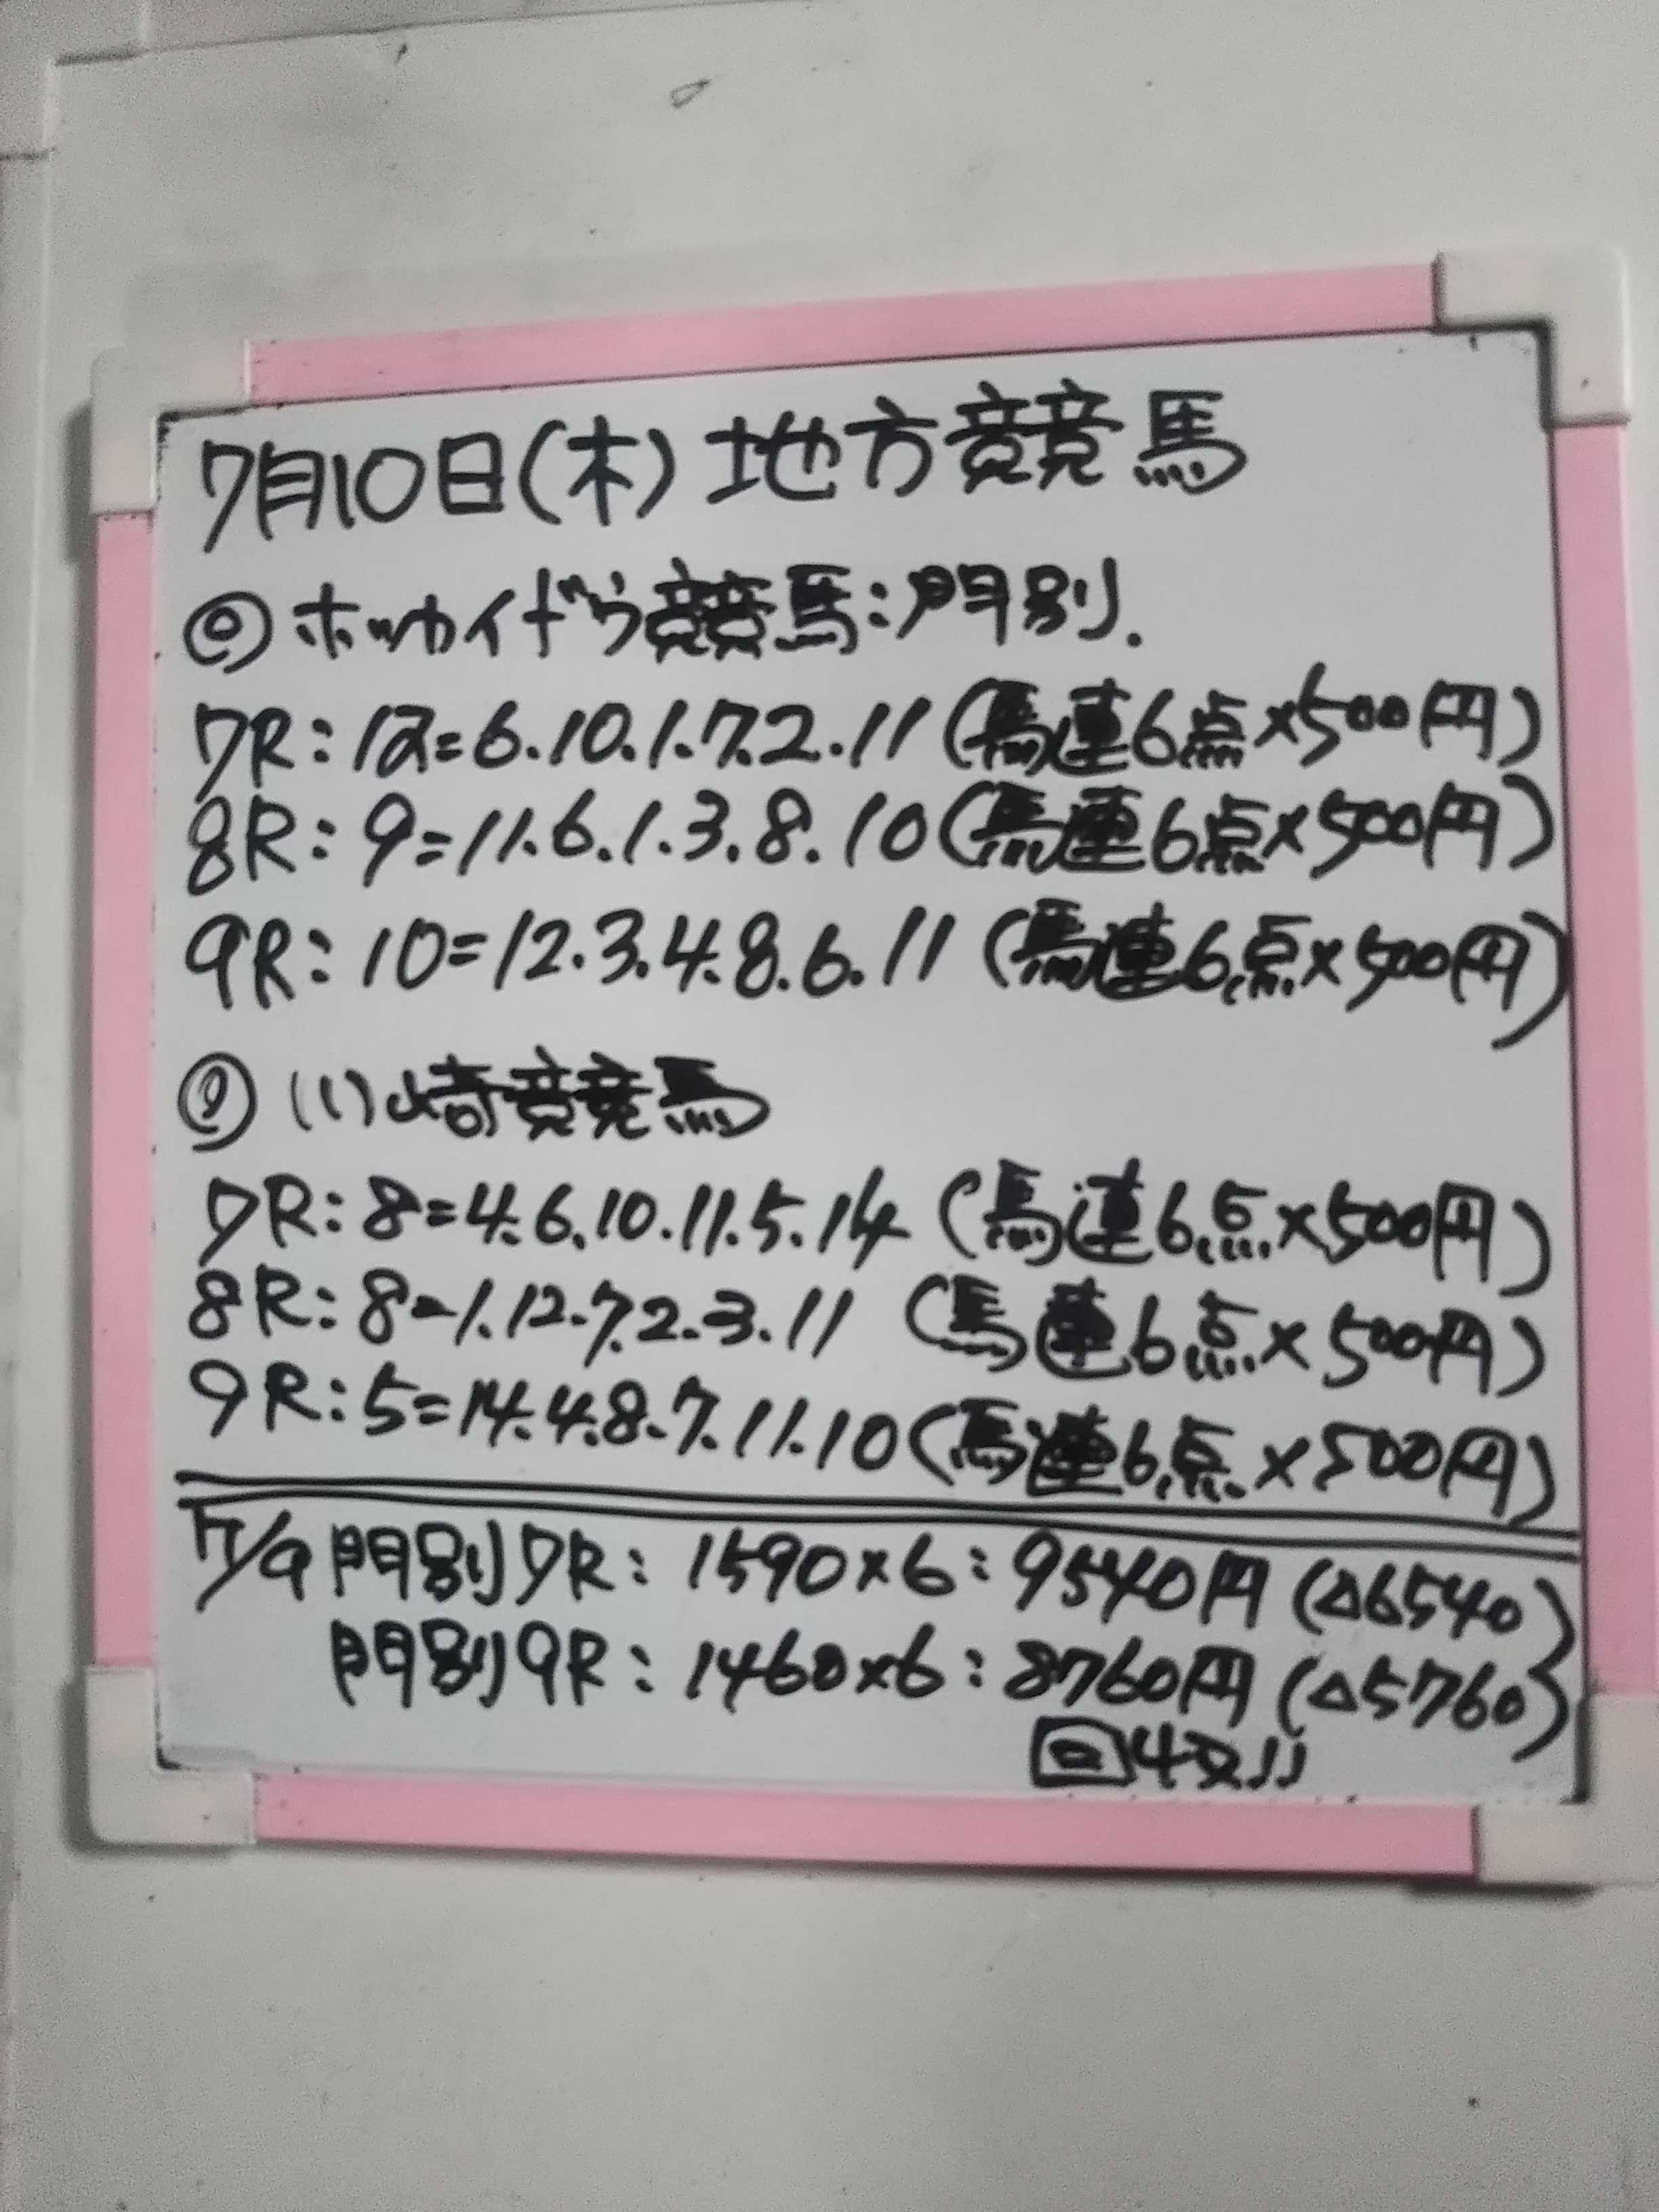 7月10日(木)地方競馬
◎ホッカイドウ競馬:門別.
7R:12=6.10.1.7.2.11(馬連6点×500円)
8R:9=11.6.1.3.8.10(馬連6点×500円)
9R:10=12.3.4.8.6.11(馬連6点×500円)
◎川崎競馬
7R:8=4.6.10.11.5.14(馬連6点×500円)
8R:8=1.12.7.2.3.11(馬連6点×500円)
9R:5=14.4.8.7.11.10(馬連6点×500円)
7/9門別7R:1590×6:9540円(△6540)
門別9R:1460×6:8760円(△5760)
回収!!